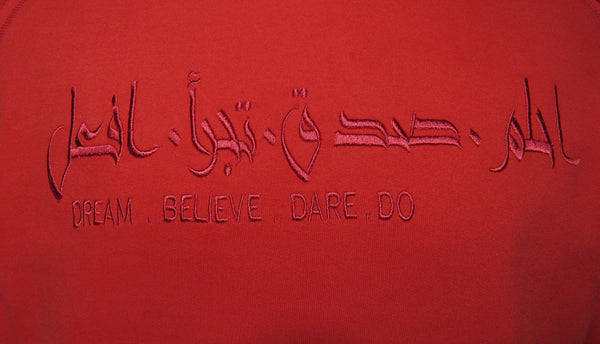 احلم . صدق . تجرأ . افعل
DREAM . BELIEVE . DARE . DO